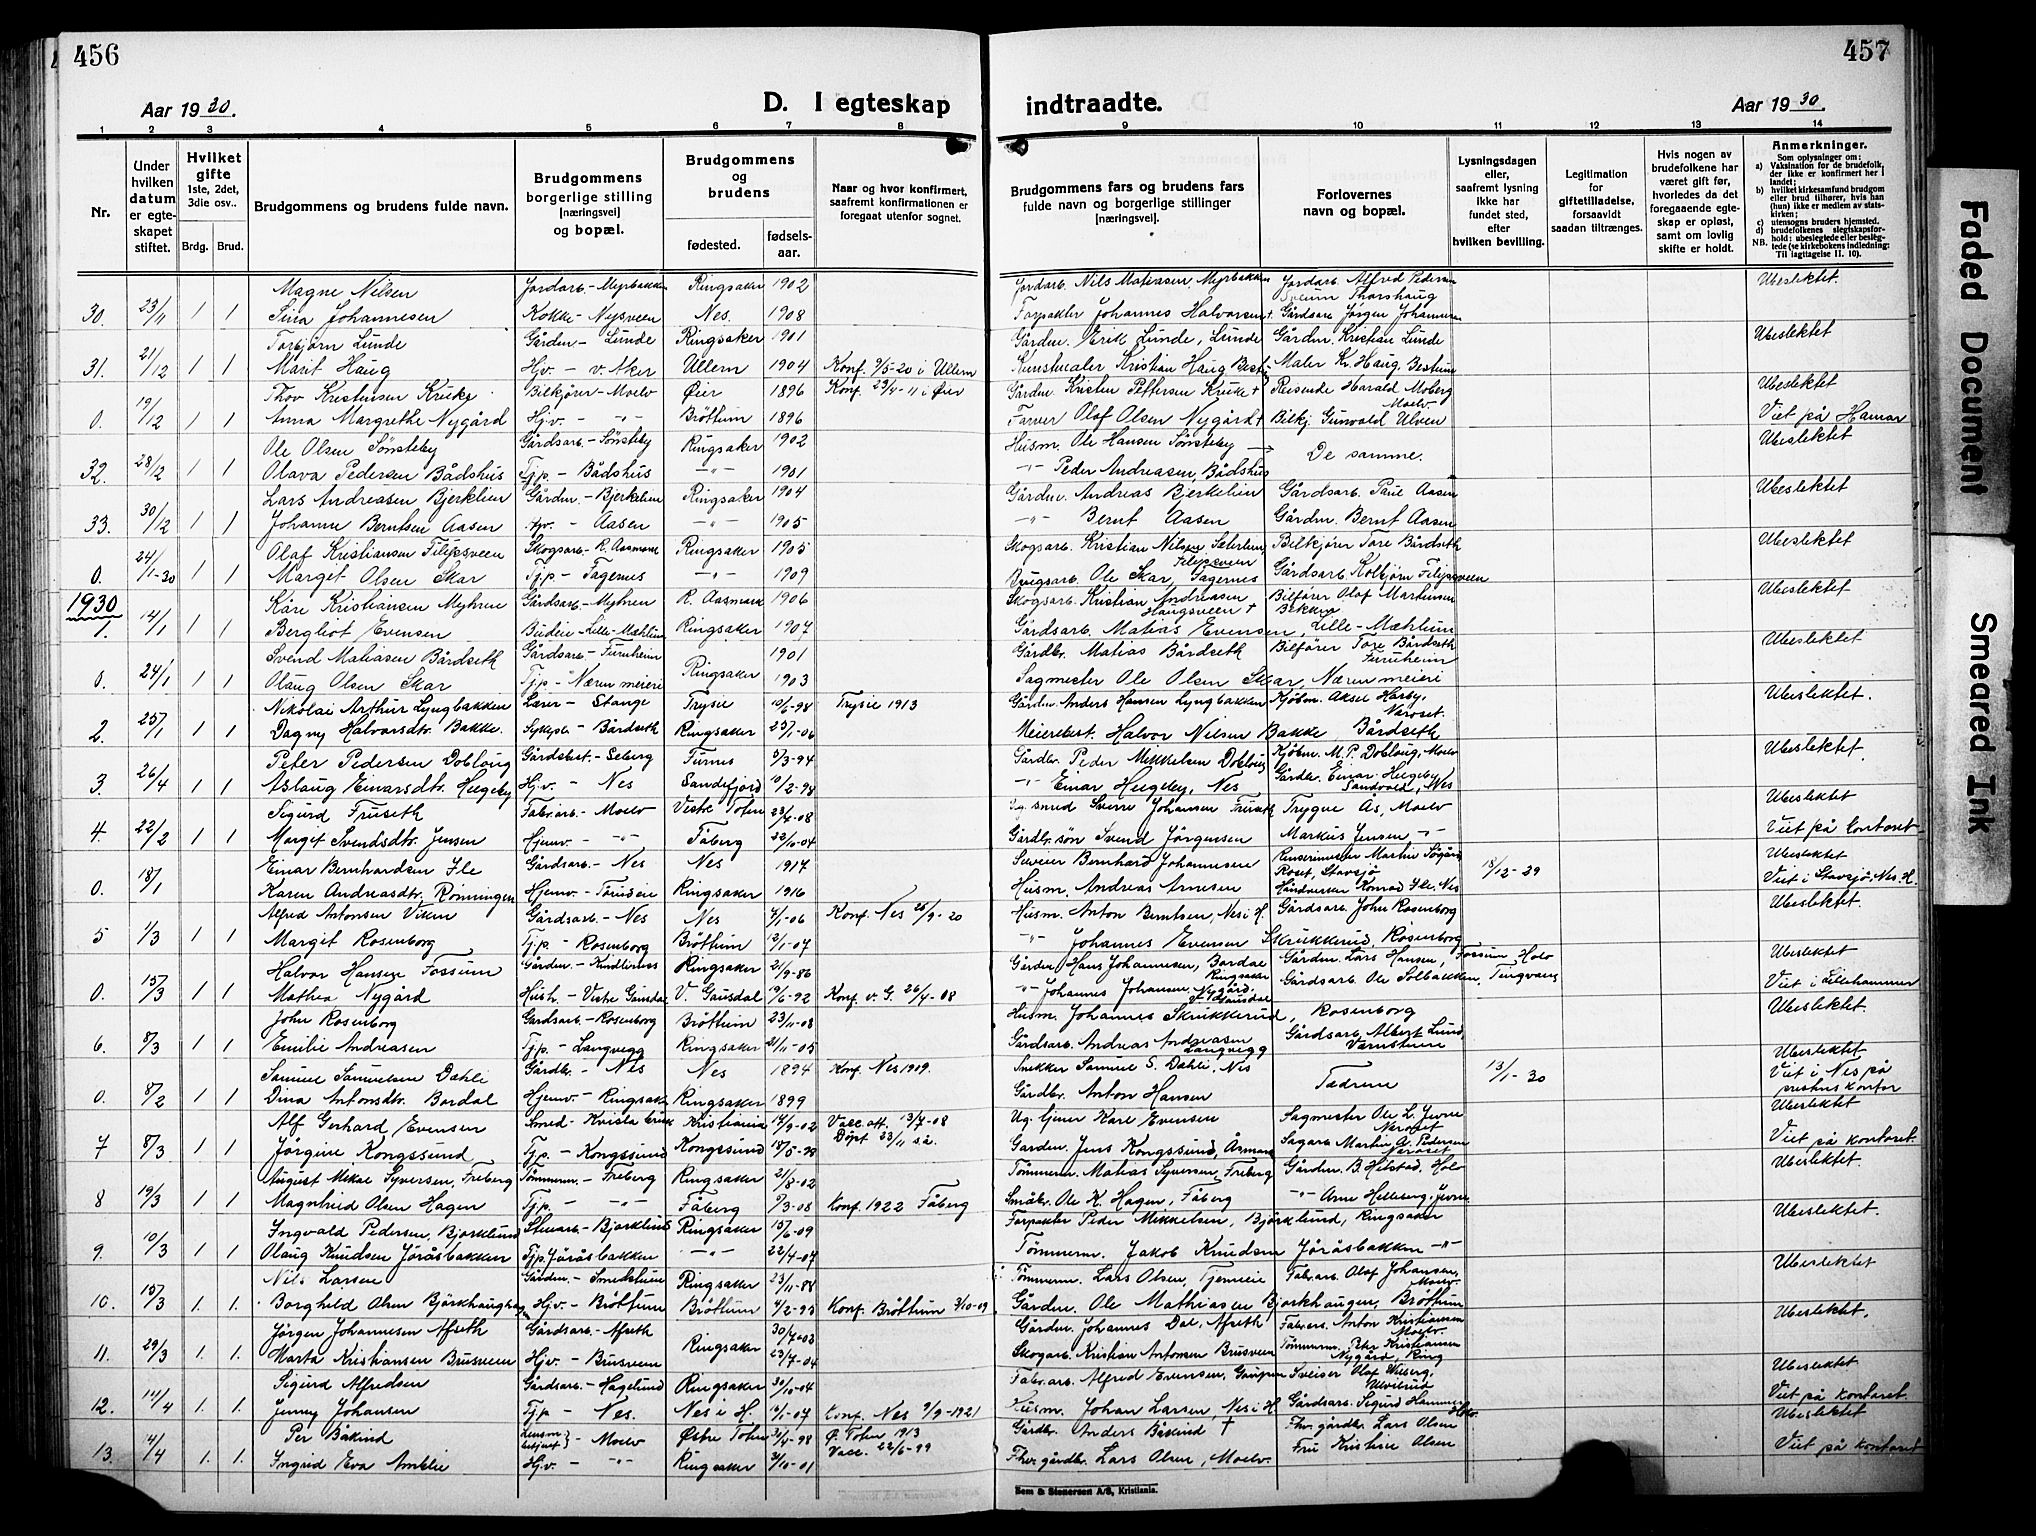 456
457
Aar 1930.
D. I egteskap
indtraadte.
Aar 1930.
1 2 3 4 5 6 7 8 9 10 11 12 13 14
Nr.
Under hvilken datum er egteskapet stiftet.
Hvilket gifte 1ste, 2det, 3die osv..
Brdg. Brud.
Brudgommens og brudens fulde navn.
Brudgommens borgerlige stilling [næringsvei] og bopæl.
Brudgommens og brudens
fødested.
fødselsaar.
Naar og hvor konfirmert, saafremt konfirmationen er foregaat utenfor sognet.
Brudgommens fars og brudens fars fulde navn og borgerlige stillinger [næringsvei].
Forlovernes navn og bopæl.
Lysningsdagen eller, saafremt lysning ikke har fundet sted, efter hvilken bevilling.
Legitimation for giftetilladelse, forsaavidt saadan tiltrænges.
Hvis nogen av brudefolkene har været gift før, hvorledes da det foregaaende egteskap er opløst, samt om lovlig skifte er holdt.
Anmerkninger.
Som oplysninger om:
a) Vaksination for de brudefolk, der ikke er konfirmert her i landet;
b) hvilket kirkesamfund brudgom eller brud tilhører, hvis han (hun) ikke er medlem av statskirken;
c) utensogns bruders hjemsted.
d) brudefolkenes slegtskapsforhold; ubeslegtede eller beslegtede (se kirkebokens indledning: Til iagttagelse II. 10).
NB.
Magne Nilsen Jordarb. - Myrbakken Ringsaker 1902 Jordarb. Nils Matiasen, Myrbakken Jordarb. Alfred Pedersen Ubeslektet.
30. 23/11 1 1 Sina Johannesen Kokke - Nysveen Nes. 1908 Forpakter Johannes Halvorsen †. Gårdsarb. Jørgen Johannesen
Torbjørn Lunde Gårdm - Lunde Ringsaker 1901 Gårdm. Erik Lunde, Lunde Gårdm. Kristian Lunde Ubeslektet
31. 21/12 1 1 Marit Haug Hjv. - v. Aker Ullern 1904 Konf. 9/5-20 i Ullern Kunstmaler Kristian Haug Maler Kr. Haug Bestum
Thov Kristensen Kruke Bilkjører - Moelv Øier 1896 Konf. 23/4-11 i Øier Gårdm. Kristen Pettersen Kruke † Reisende Harald Moberg Moelv Ubeslektet
0. 19/12 1 1 Anna Margrethe Nygård Hjv. - -"- Brøttum 1896 Farver Olaf Olsen Nygård † Bilkj. Gunvald Ulven Viet på Hamar
Ole Olsen Sønsteby Gårdsarb. - Sønsteby Ringsaker 1902 Husm. Ole Hansen Sønsteby Ubeslektet
32. 28/12 1 1 Olava Pedersen Bådshus Tj.p - Bådshus -"- 1901 -"- Peder Andreasen, Bådshus De samme.
Lars Andreasen Bjerkelien Gårdm. - Bjerkelien Ringsaker 1904 Gårdm. Andreas Bjerkelien Gårdsarb. Paul Aasen Ubeslektet
33. 30/12 1 1 Johanne Berntsen Aasen Hjv. - Aasen -"- 1905 -"- Bernt Aasen Gårdm. Bernt Aasen
Olaf Kristiansen Filipsveen Skogsarb. - R. Aasmark Ringsaker 1905 Skogsarb. Kristian Nilsen Filipsveen Bilkjører Tore Bårdseth Ubeslektet
0. 24/1-30 1 1 Margit Olsen Skar Tj.p - Fagernes -"- 1909 Brugsarb. Ole Skar, Fagernes Gårdsarb. Kolbjørn Filipsveen
1930
Kåre Kristiansen Myhren Gårdsarb. - Myhren R. Aasmark 1906 Skogsarb. Kristian Andreasen Haugsveen † Bilfører Olaf Martinsen Bekken Ubeslektet
1. 14/1 1 1 Bergliot Evensen Budeie - Lille-Mæhlum Ringsaker 1907 Gårdsarb. Matias Evensen, Lille-Mæhlum
Svend Matiasen Bårdseth Gårdsarb. - Furuheim Ringsaker 1901 Gårdbr. Matias Bårdseth Bilfører Tore Bårdseth Furuheim Ubeslektet
0. 24/1 1 1 Olaug Olsen Skar Tj.p - Næren meieri 1903 Sagmester Ole Olsen Skar, Næren meieri
Nikolai Arthur Lyngbakken Lærer - Stange Trysil 10/6-98 Trysil 1913 Gårdm. Anders Hansen Lyngbakken Kjøbm. Aksel Naroset. Ubeslektet.
2. 25/1 1 1 Dagny Halvorsdtr. Bakke. - Bårdseth Ringsaker 23/1-06 Meieribest. Halvor Nilsen Bakke, Bårdseth
Peter Pedersen Dobloug Gårdsbest. - Seberg Furnes 5/3-94 Gårdbr. Peder Mikkelsen Dobloug Kjøbm. M. P. Dobloug, Moelv Ubeslektet.
3. 26/4 1 1 Aslaug Einarsdtr. Helgeby Hjv. - Nes Sandefjord 10/2-98 -"- Einar Helgeby, Nes Gårdbr. Einar Helgeby Sandvold, Nes
Sigurd Fruseth Fabr.arb. - Moelv Vestre Toten 23/4-08 smed Sverre Johansen Fruseth Trygve Ås, Moelv Ubeslektet
4. 22/2 1 1 Margit Svendsdtr. Jensen Hjemv. - -"- Fåberg 22/6-04 Gårdbr. søn Svend Jørgensen Markus Jensen -"- Viet på kontoret
Einar Bernhardsen Ile Gårdsarb. - Nes Nes 1917 Sveiser Bernhard Johannesen Martin Roset, Stavsjø 18/12-29 Ubeslektet
0. 18/1 1 1 Karen Andreasdtr. Rønningen Hjemv. - Ringsaker 1916 Husm. Andreas Arnesen Håndverker Konrad Ile, Nes Viet i Stavsjø, Nes H.
Alfred Antonsen Viken Gårdsarb. - Nes Nes 4/1-06 Konf. Nes 26/9-20 Husm. Anton Berntsen, Nes i H. Gårdsarb. John Rosenborg Ubeslektet.
5 1/3 1 1 Margit Rosenborg Tj.p - Rosenborg Brøttum 12/1-07 -"- Johannes Evensen Skrukkerud, Rosenborg
Halvor Hansen Fossum Gårdm. - Ringsaker 21/9-86 Gårdm. Hans Johannesen, Bordal Ringsaker Gårdm. Lars Hansen, Fossum Holo Ubeslektet
0. 15/3 1 1 Mathea Nygård Hush. - Vestre Gausdal V. Gausdal 19/6-92 Konf. v. G. 26/4-08 -"- Johannes Johansen, Nygård, V. Gausdal Gårdsarb. Ole Solbakken, Tingvang Viet i Lillehammer
John Rosenborg Gårdsarb. - Rosenborg Brøttum 23/11-08 Husm. Johannes Skrukkerud, Rosenborg Ubeslektet.
6. 8/3 1 1 Emilie Andreasen Tj.p. - Langvegg Ringsaker 21/11-05 Gårdsarb. Andreas Andreasen Langvegg Gårdsarb. Albert Lund,
Samuel Samuelsen Dahli Gårdbr. - Nes Nes 1894 Konf. Nes 1909. Snekker Samuel S. Dahli, Nes 13/1-30 Ubeslektet
0. 8/2 1 1 Dina Antonsdtr. Bordal Hjemv - Ringsaker Ringsaker 1899 Gårdbr. Anton Hansen Fadrene Viet i Nes på prestens kontor
Alf Gerhard Evensen Smed - Kristiania 14/9-02 Vacc. att. 13/7-08 Ug. Karl Evensen Sagmester Ole L. Jevne Næroset Ubeslektet
7 8/3 1 1 Jørgine Kongssund Tj.p. - Kongssund Kongssund 18/5-98 Døpt 23/11 s.å. Gårdm. Jens Kongssund, Åsmark Sagarb. Martin A. Pedersen Næroset Viet på kontoret.
August Mikal Syversen Freberg Tømmerm. - Freberg Ringsaker 21/8-02 Tømmerm. Matias Syversen, Freberg Gårdm. B. Hilstad, Holo Ubeslektet.
8 19/3 1 1 Magnhild Olsen Hagen Tj.p. -"- Fåberg 9/3-08 Konf. 1922 Fåberg Småbr. Ole K. Hagen, Fåberg -"- Arne Helleberg, Jevne
Ingvald Pedersen Bjørklund - Bjørklund Ringsaker 15/6-09 Forpakter Peder Mikkelsen, Bjørklund, Ringsaker Ubeslektet.
9. 10/3 1 1 Olaug Knudsen Jøråsbakken Tj.p. Jøråsbakken -"- 22/4-07 Tømmerm. Jakob Knudsen Jøråsbakken -"-
Nils Larsen Gårdm. - Ringsaker 23/11-84 Tømmerm. Lars Olsen, Fabr.arb. Olaf Johansen, Moelv. Ubeslektet
10. 15/3 1. 1. Borghild Olsen Bjørkhaug Hjv. - Brøttum Brøttum 4/2-95 Konf. Brøttum 3/10-09 Gårdm. Ole Mathiasen Bjørkhaugen, Brøttum
Jørgen Johannesen Afseth Gårdsarb. - Afseth Ringsaker 30/7-03 Gårdm. Johannes Dal, Afseth Fabr.arb. Anton Kristiansen Moelv. Ubeslektet.
11. 29/3 1. 1. Marta Kristiansen Brusveen Hjv. - Brusveen 23/7-04 Skogarb. Kristian Antonsen Brusveen Tømmerm. Peter Kristiansen Nygård, Ring
Sigurd Alfredsen Gårdsarb. - Hagelund Ringsaker 30/10-04 Fabr.arb. Alfred Evensen, Sveiser Olaf Ubeslektet
12. 11/4 1. 1. Jenny Johansen Tj.p - Nes. Nes i H. 10/1-07 Konf. Nes 9/9-1921 Husm. Johan Larsen, Nes i H. Gårdsarb. Sigurd Hammer Holo Viet på kontoret
Per Båkind Lensm. betjent - Moelv Østre Toten 30/4-98 Ø. Toten 1913 Gårdbr. Anders Båkind † Fhv. gårdbr. Lars Olsen Ubeslektet
13. 4/4 1. 1. Ingrid Eva Amalie Hjv. - -"- Ringsaker 3/10-01 Vacc. 22/6-99 Fhv. gårdbr. Lars Olsen, Moelv. Fru Kristine Olsen Viet på kontoret
Sem & Stenersen A/S, Kristiania.
Faded Document
Smeared Ink